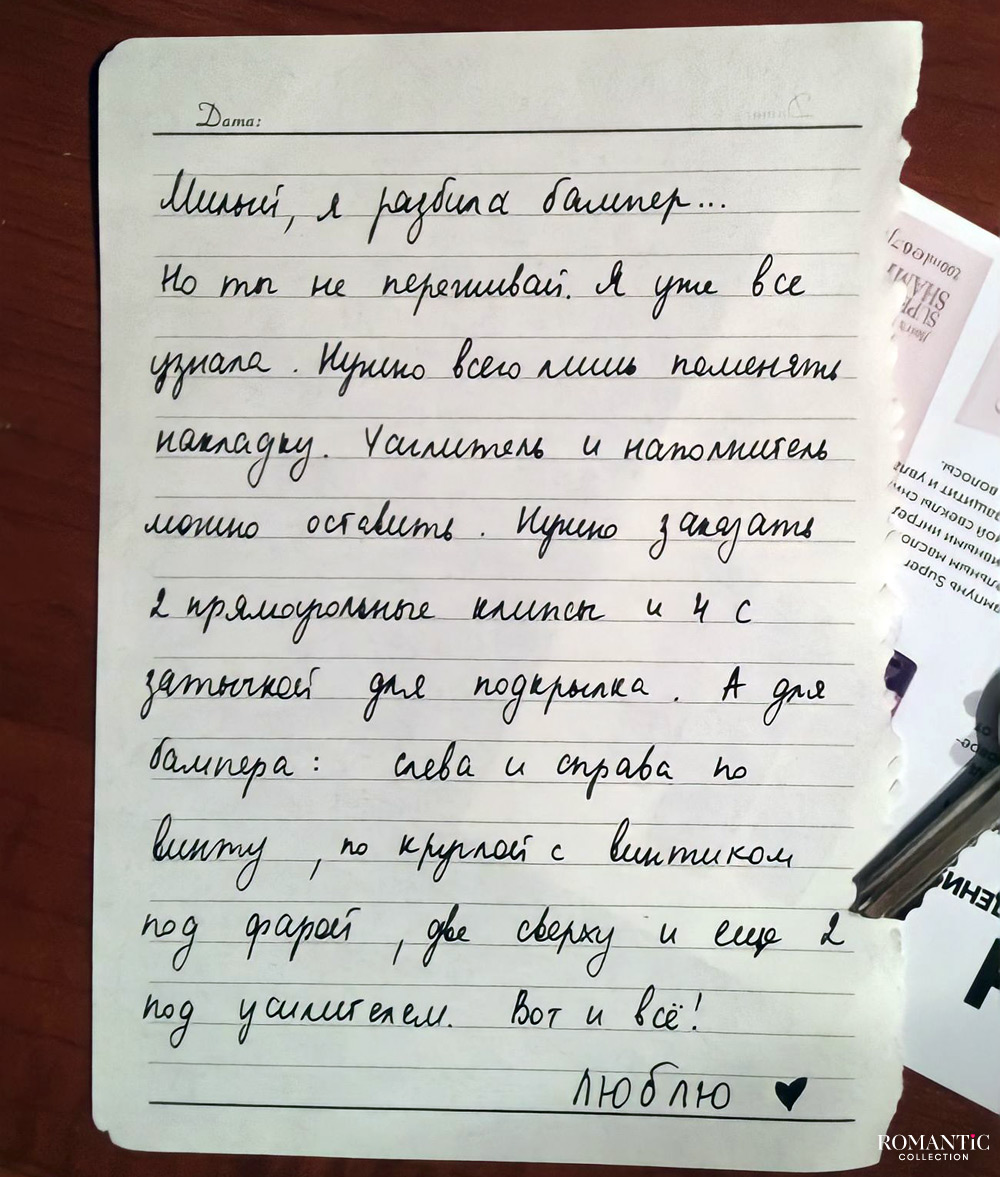 Дата:
Милый, я разбила бампер...
Но ты не переживай. Я уже все
узнала. Нужно всего лишь поменять
накладку. Усилитель и наполнитель
можно оставить. Нужно заказать
2 прямоугольные клипсы и 4 с
затычкой для подкрылка. А для
бампера: слева и справа по
винту, по круглой с винтиком
под фарой, две сверху и еще 2
под усилителем. Вот и всё!
люблю ♥
200ml
SHAM
SUP
волосы.
защитит и увл
ной свеклы
ными ингред
льным масло
мпунь Super
ROMANTiC
COLLECTION